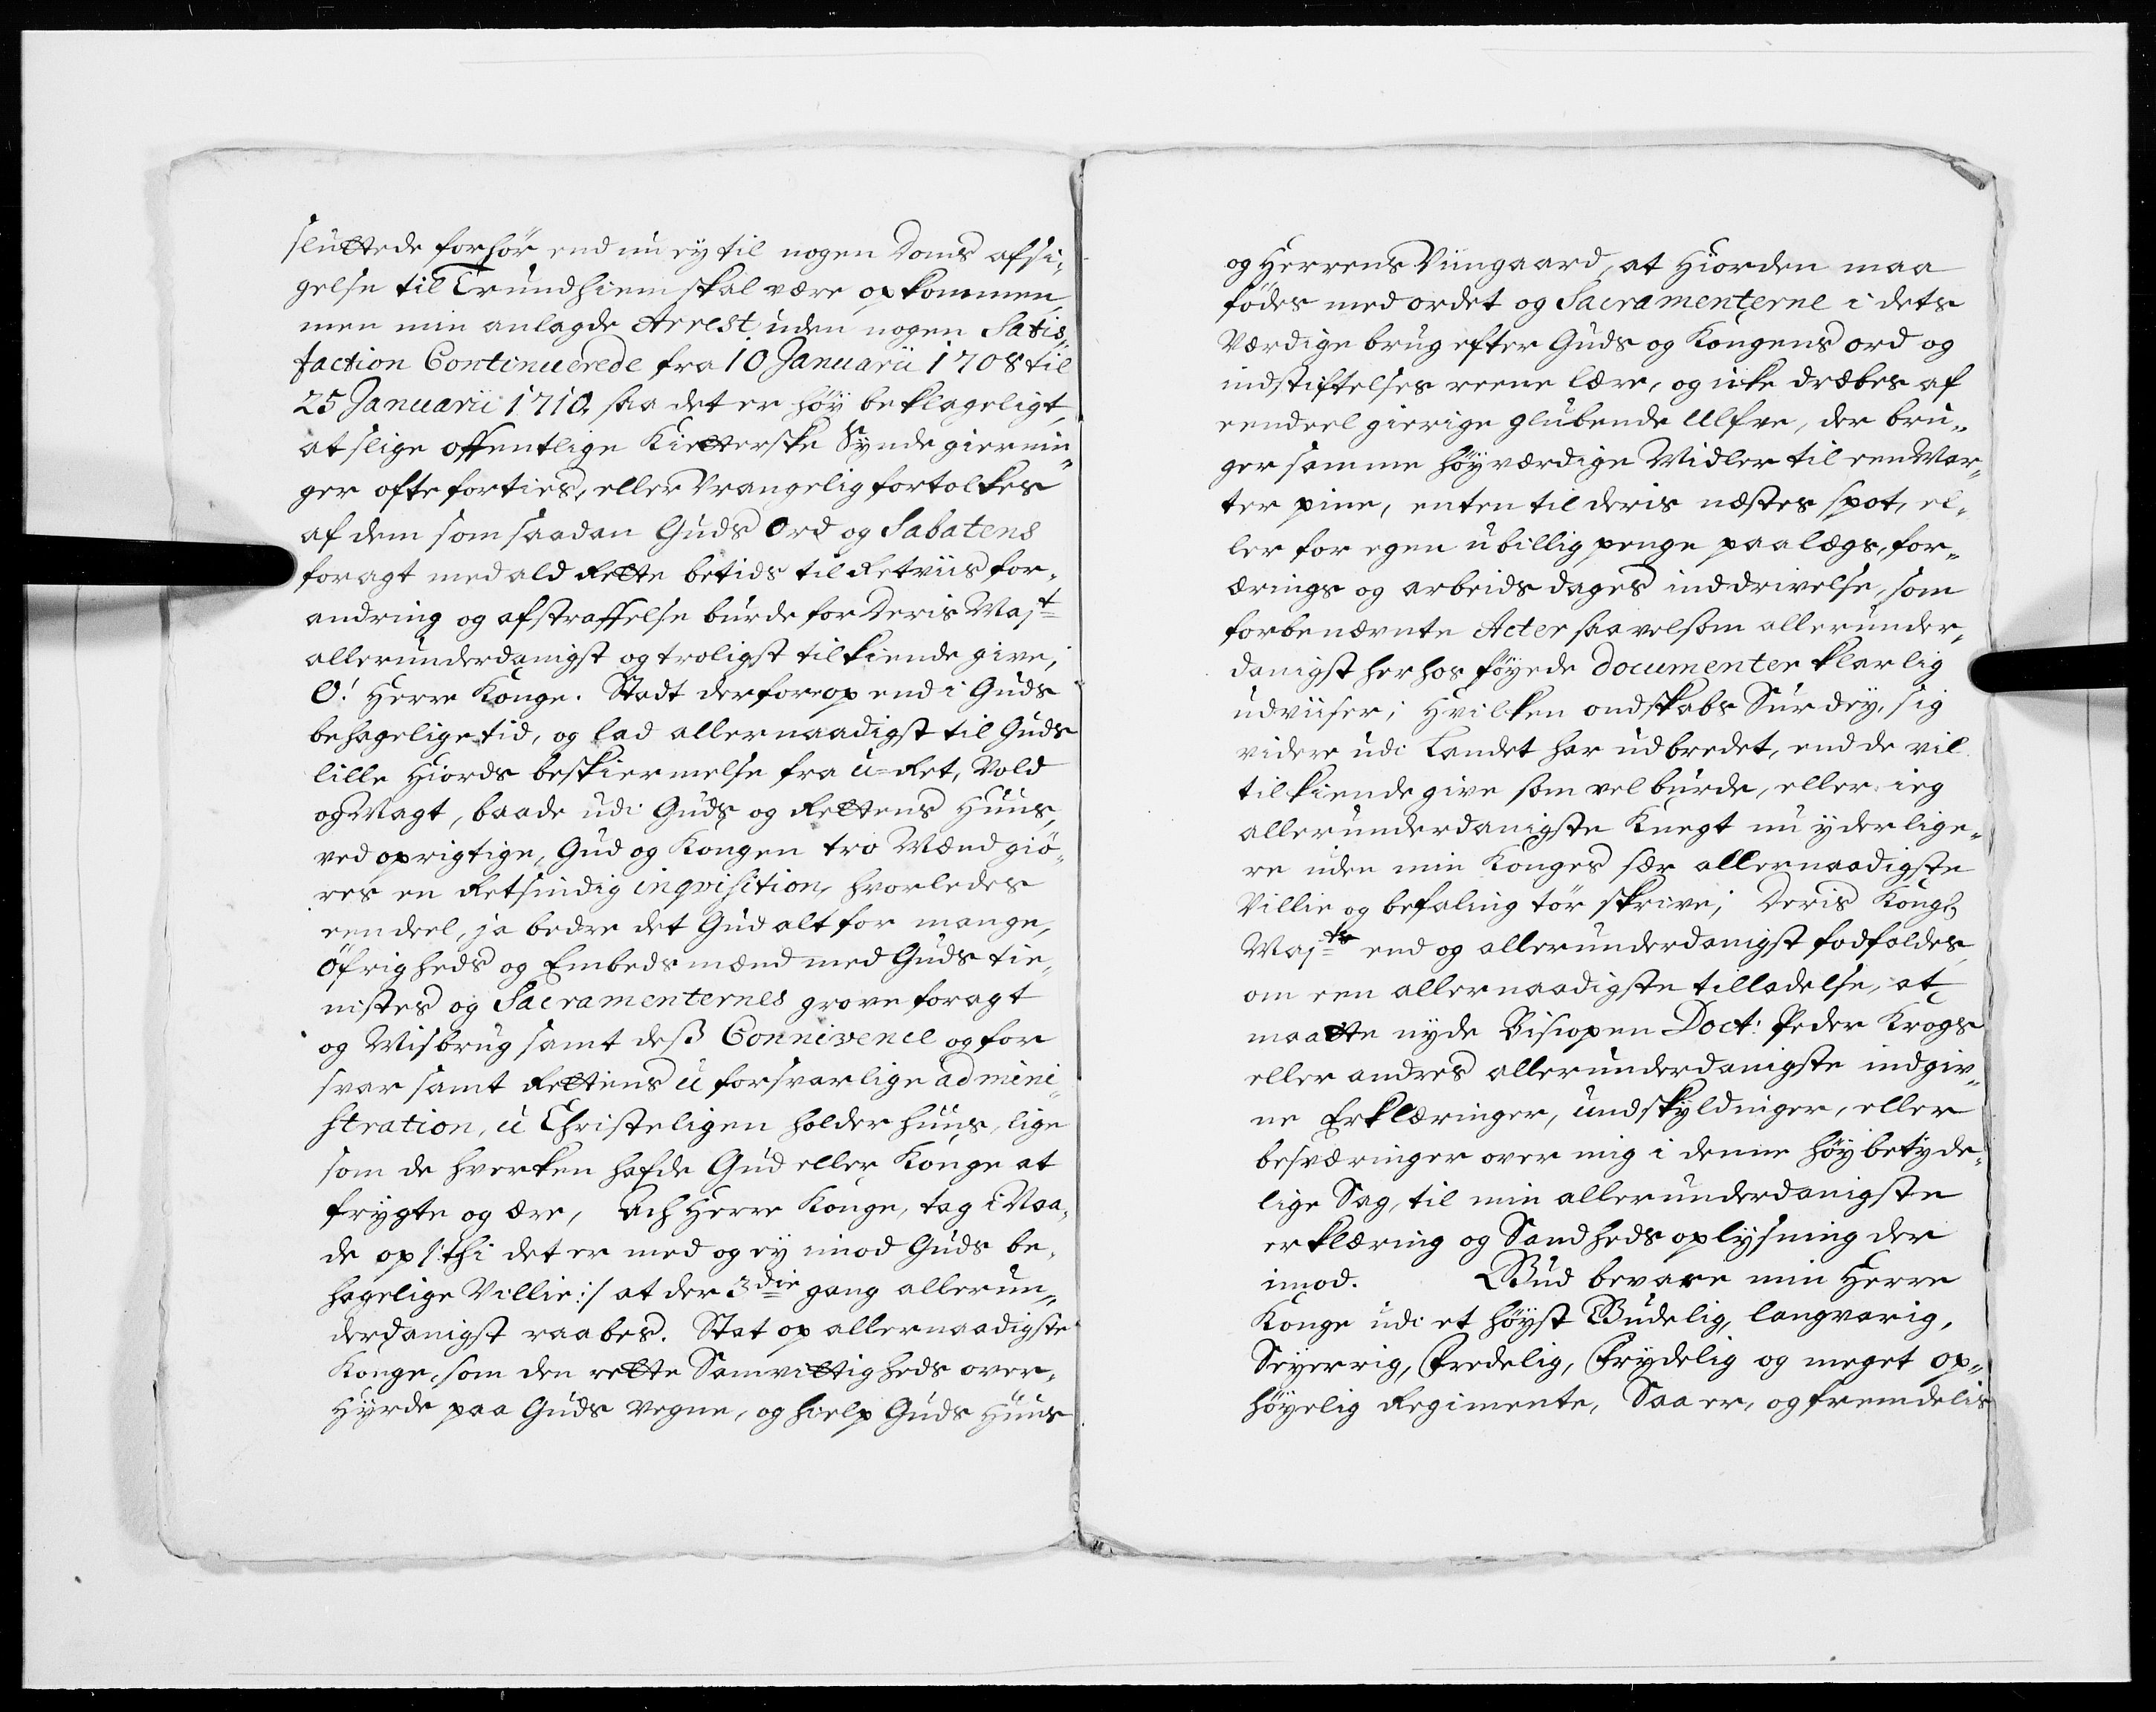 sluttede forhør end nu ey til nogen Doms afsi,,
gelse til Trundhiem skal være opkommen
men min anlagde Arrest uden nogen Satis,,
faction Continuerede fra 10 Januarii 1708 til
25 Januarii 1710, saa det er høy beklageligt,
at slige offentlige Kietterske Synde giernin,,
ger ofte forties, eller Vrangelig fortolkes
af dem som saadan Guds Ord og Sabatens
foragt med ald Rette betids til Retviis for,,
andring og afstraffelse burde for Deris Majt
allerunderdanigst og troligst tilkiende give,
O! Herre Konge. Stadt derfore op end i Guds
behagelige tid, og lad allernaadigst til Guds
lille Hiords beskiermelse fra u=Ret, Vold
og Magt, baade udi Guds og Rettens Huus,
ved oprigtige, Gud og Kongen tro Mænd giø,,
res en Retsindig inqvisition, hvorledes
een deel, ja bedre det Gud alt for mange,
Øfrigheds og Embedsmænd med Guds tie,,
nistes og Sacramenternes grove foragt
og Misbrug samt dess Connivence og for
svar samt Rettens u forsvarlige admini,,
stration, u Christeligen holder huus, lige
som de hverken hafde Gud eller Konge at
frygte og ære, Ach Herre Konge, tag i Naa,,
de op /: thi det er med og ey imod Guds be,,
hagelige Villie :/ at der 3die gang allerun,,
derdanigst raabes. Stat op allernaadigste
Konge, som den rette Samvittigheds over,,
Hyrde paa Guds vegne, og hielp Guds Huus
og Herrens Viingaard, at Hiorden maa
fødes med ordet og Sacramenterne i dets
Værdige brug efter Guds og Kongens ord og
indstiftelses reene lære, og icke dræbes af
eendeel gierige glubende Ulfve, der bru,,
ger samme høyværdige Midler til een Mar,,
ter pine, enten til deris næstes spot, el,,
ler for egen ubillig penge paalægs, for,,
ærings og arbeids dages inddrivelse, som
forbenævnte Acter saavelsom allerunder,,
danigst herhos føyede documenter klarlig
udviiser; Hvilken ondskabs Surdey, sig
videre udi Landet har udbredet, end de vil
tilkiende give som vel burde, eller ieg
allerunderdanigste Knegt nu yderlige,,
re uden min Konges sær allernaadigste
Villie og befaling tør skrive; Deris Kongl
Majts end og allerunderdanigst fodfaldes
om een allernaadigste tilladelse, at
maatte nyde Bispen Doct: Peder Krogs
eller andres allerunderdanigste indgiv,,
ne Erklæringer, undskyldninger, eller
besværinger over mig i denne høybetyde,,
lige Sag, til min allerunderdanigste
erklæring og Sandheds oplysning der
imod. Gud bevare min Herre
Konge udi et høyst Gudelig, langvarig,
Seyerrig, Fredelig, Frydelig og meget op,,
høyelig Regimente, Saa er, og fremdelis